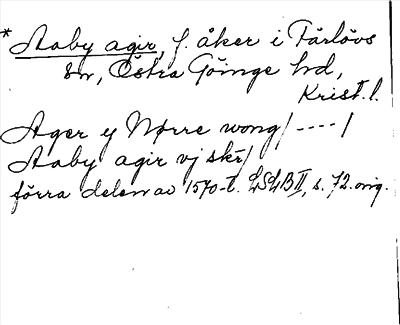 * Aaby agir, f. åker i Färlövs
sn, Östra Göinge hd,
Krist. l.
Ager y Nørre wong/ ---- /
Aaby agir vj skr/
förra delen av 1570-t. LSLB II, s. 72. orig.